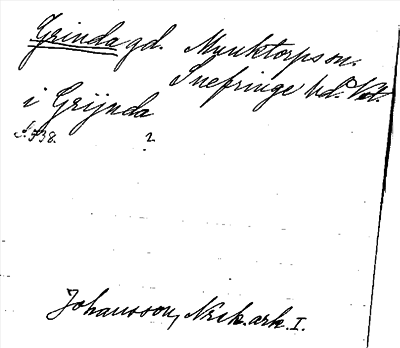 Grinda gd. Munktorps sn.
Snefringe hd. Vstm.
i Grijnda
s. 538. 2
Johansson, Nrik. ark. I.